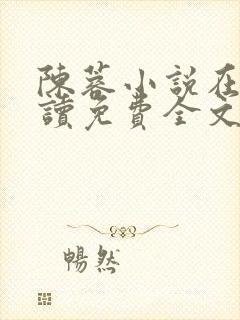 陳蓉小説在
讀免費全文
暢然